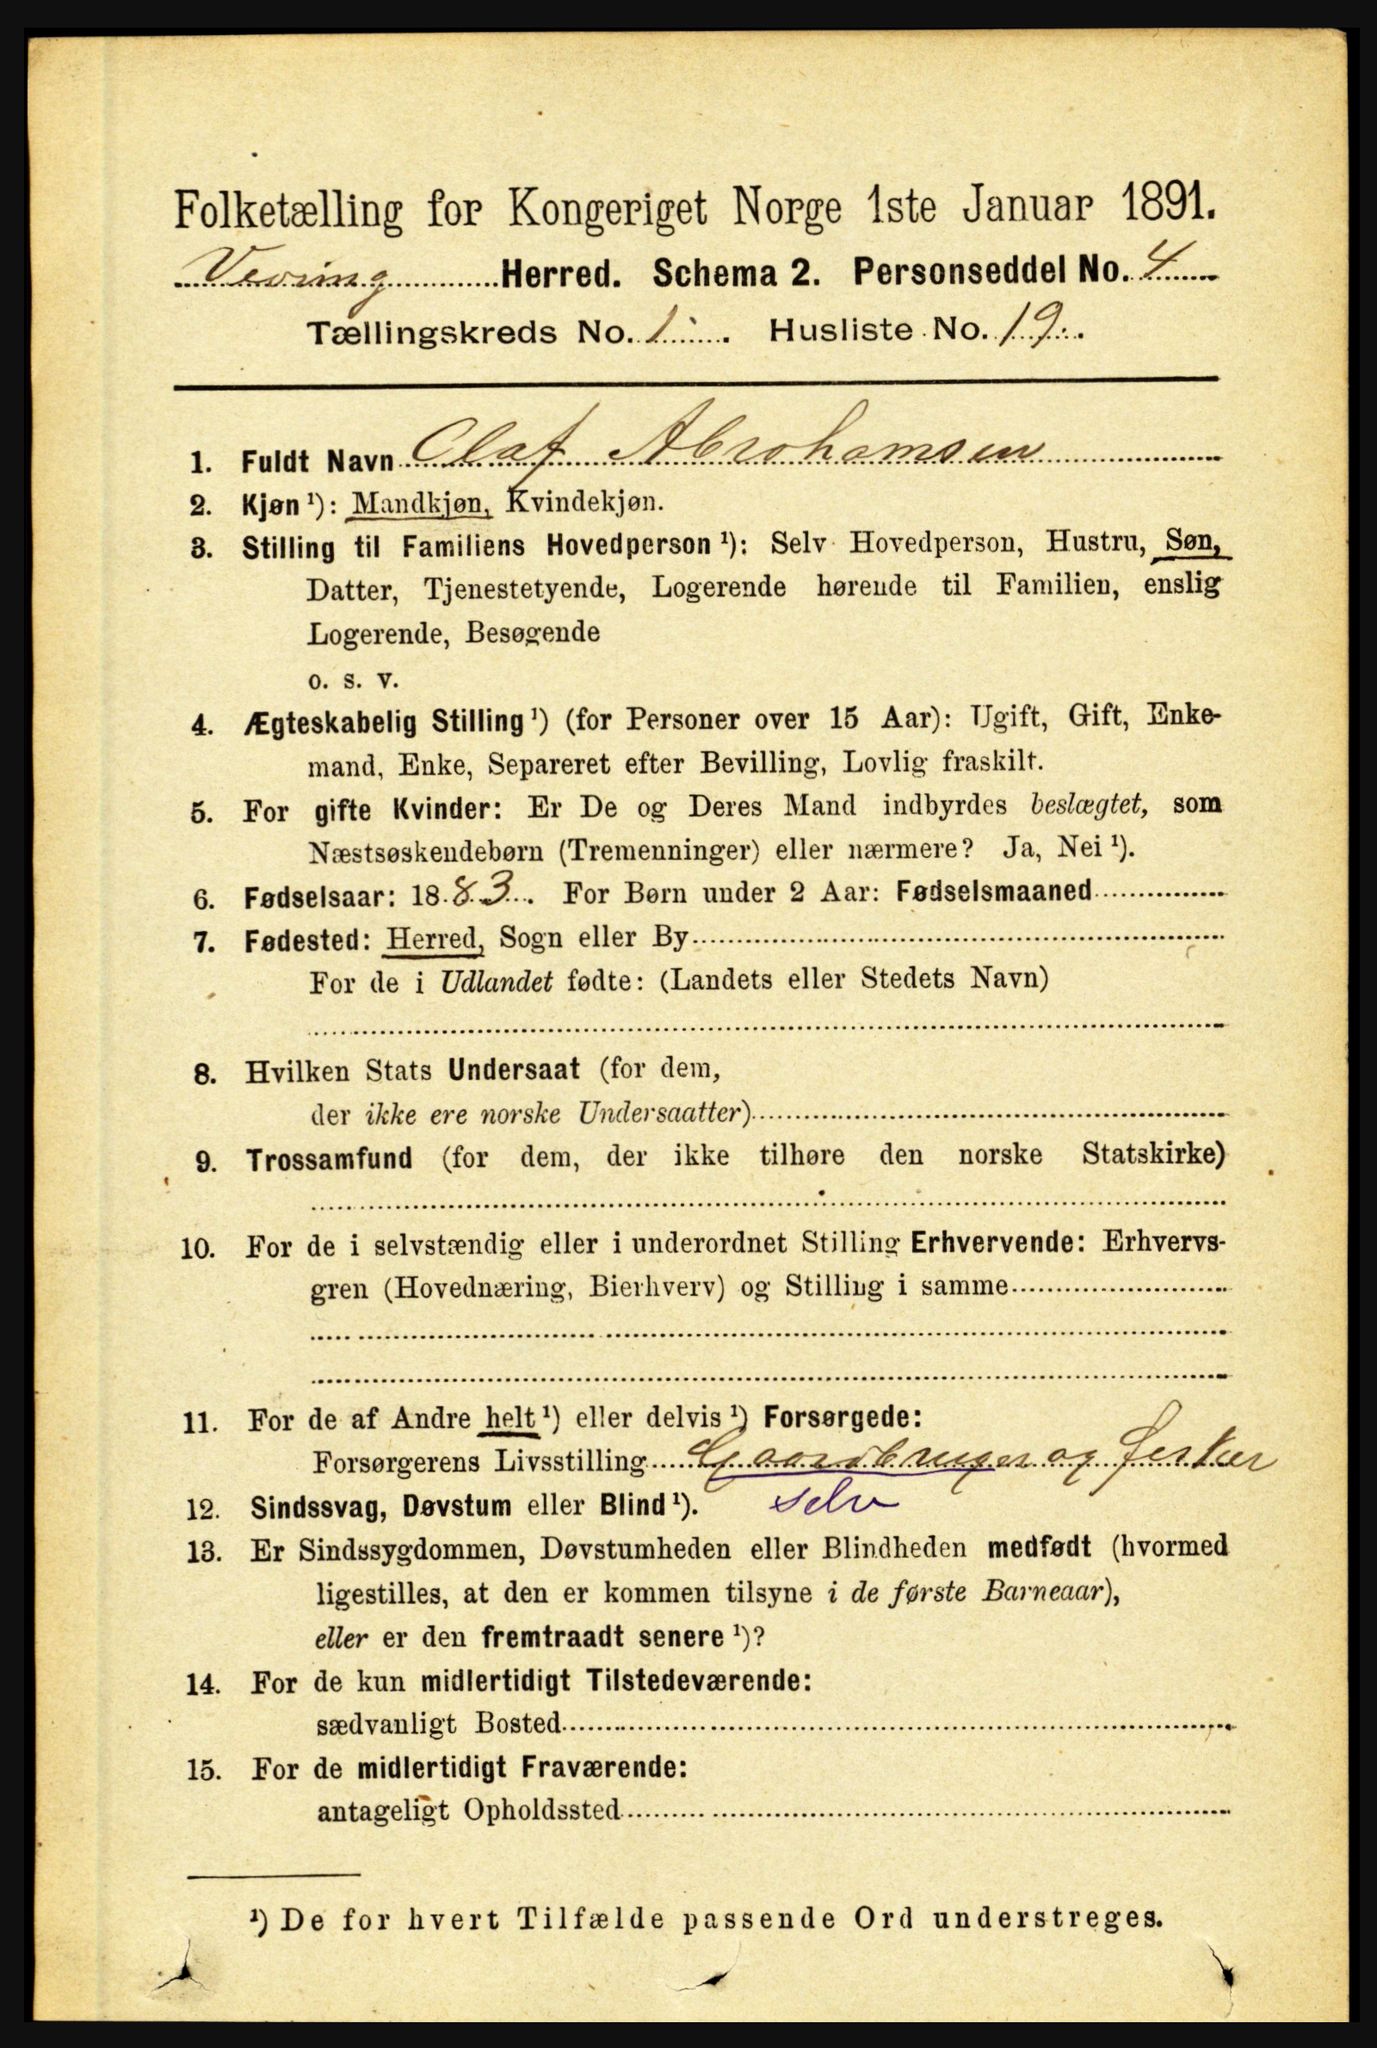 Folketælling for Kongeriget Norge 1ste Januar 1891.
Vevring Herred. Schema 2. Personseddel No. 4
Tællingskreds No. 1. Husliste No. 19.
1. Fuldt Navn Olaf Abrahamsen
2. Kjøn ¹): Mandkjøn, Kvindekjøn.
3. Stilling til Familiens Hovedperson ¹): Selv Hovedperson, Hustru, Søn,
Datter, Tjenestetyende, Logerende hørende til Familien, enslig
Logerende, Besøgende
o. s. v.
4. Ægteskabelig Stilling ¹) (for Personer over 15 Aar): Ugift, Gift, Enke-
mand, Enke, Separeret efter Bevilling, Lovlig fraskilt.
5. For gifte Kvinder: Er De og Deres Mand indbyrdes beslægtet, som
Næstsøskendebørn (Tremenninger) eller nærmere? Ja, Nei ¹).
6. Fødselsaar: 1883. For Børn under 2 Aar: Fødselsmaaned
7. Fødested: Herred, Sogn eller By
For de i Udlandet fødte: (Landets eller Stedets Navn)
8. Hvilken Stats Undersaat (for dem,
der ikke ere norske Undersaatter)
9. Trossamfund (for dem, der ikke tilhøre den norske Statskirke)
10. For de i selvstændig eller i underordnet Stilling Erhvervende: Erhvervs-
gren (Hovednæring, Bierhverv) og Stilling i samme
11. For de af Andre helt ¹) eller delvis ¹) Forsørgede:
Forsørgerens Livsstilling Gaardbruger og fisker
12. Sindssvag, Døvstum eller Blind ¹). selv
13. Er Sindssygdommen, Døvstumheden eller Blindheden medfødt (hvormed
ligestilles, at den er kommen tilsyne i de første Barneaar),
eller er den fremtraadt senere ¹)?
14. For de kun midlertidigt Tilstedeværende:
sædvanligt Bosted
15. For de midlertidigt Fraværende:
antageligt Opholdssted
¹) De for hvert Tilfælde passende Ord understreges.